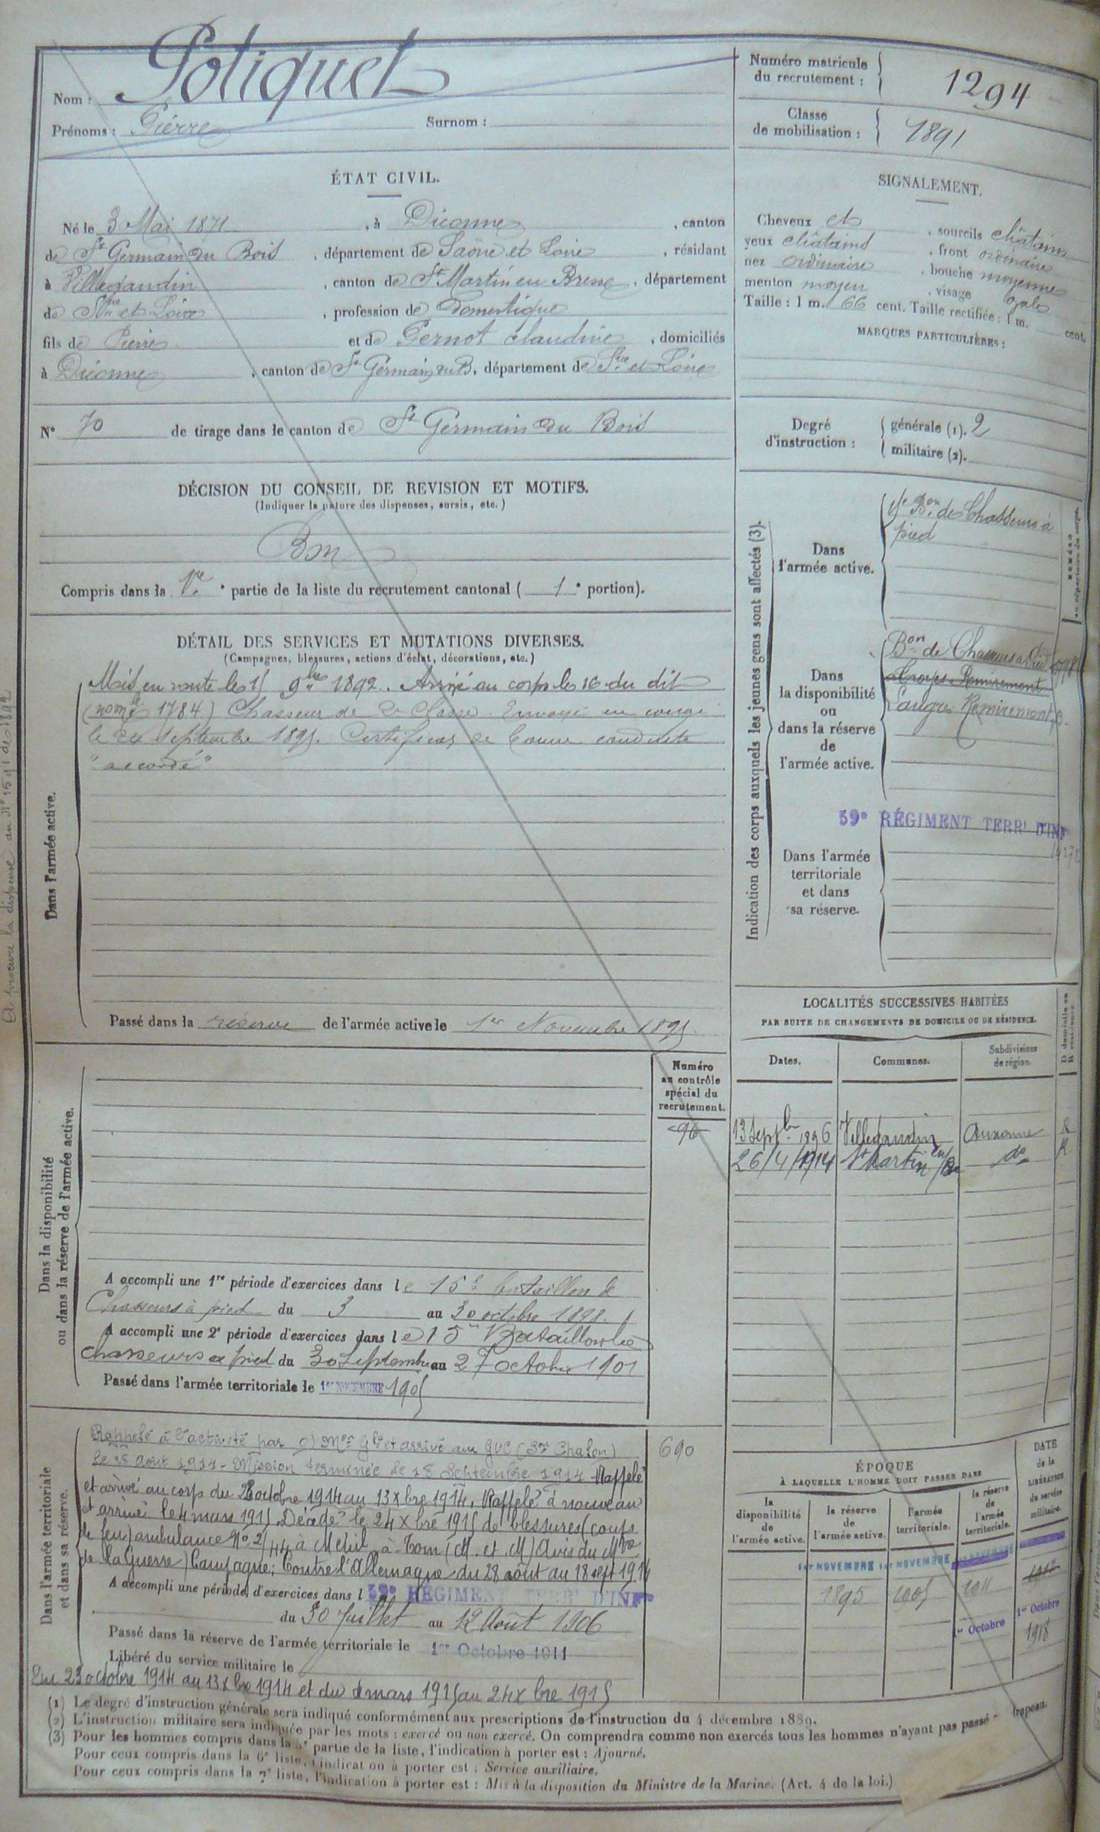 Nom : Potiquet
Prénoms : Pierre Surnom :
Numéro matricule du recrutement : 1294
Classe de mobilisation : 1891
ÉTAT CIVIL.
Né le 3 Mai 1871, à Diconne, canton
de St Germain du Bois, département de Saône et Loire, résidant
à Villegaudin, canton de St Martin en Bresse, département
de Sne et Loire, profession de Domestique
fils de Pierre et de Pernot Claudine, domiciliés
à Diconne, canton de St Germain du B, département de Sne et Loire
N° 70 de tirage dans le canton de St Germain du Bois
SIGNALEMENT.
Cheveux et , sourcils châtains
yeux châtains , front ordinaire
nez ordinaire , bouche moyenne
menton moyen , visage ovale
Taille : 1 m. 66 cent. Taille rectifiée : 1 m. cent.
MARQUES PARTICULIÈRES :
Degré d'instruction : générale (1). 2
militaire (2).
DÉCISION DU CONSEIL DE REVISION ET MOTIFS.
(Indiquer la nature des dispenses, sursis, etc.)
Bon
Compris dans la 1re partie de la liste du recrutement cantonal ( 1e portion).
DÉTAIL DES SERVICES ET MUTATIONS DIVERSES.
(Campagnes, blessures, actions d'éclat, décorations, etc.)
Dans l'armée active.
Mis en route le 15 9bre 1892. Arrivé au corps le 16 du dit
1784) Chasseur de 2e Classe. Envoyé en congé
le 24 septembre 1895. Certificat de bonne conduite
"accordé"
Passé dans la réserve de l'armée active le 1er Novembre 1895
Indication des corps auxquels les jeunes gens sont affectés (3).
Dans l'armée active.
15e Bon de Chasseurs à
pied
Dans la disponibilité ou dans la réserve de l'armée active.
Bon de Chasseurs à Pied
Langres Remiremont
59e RÉGIMENT TERRal D'INF
Dans l'armée territoriale et dans sa réserve.
LOCALITÉS SUCCESSIVES HABITÉES
PAR SUITE DE CHANGEMENTS DE DOMICILE OU DE RÉSIDENCE.
Dates. Communes. Subdivisions de région.
13 Septbre 1896 Villegaudin Auxonne R
26/4/1914 St Martin en/Be do R
Dans la disponibilité ou dans la réserve de l'armée active.
Numéro au contrôle spécial du recrutement.
90
A accompli une 1re période d'exercices dans le 15e bataillon de
Chasseurs à pied du 3 au 30 octobre 1898
A accompli une 2e période d'exercices dans le 15e Bataillon de
chasseurs à pied du 30 Septembre au 27 octobre 1901
Passé dans l'armée territoriale le 1er NOVEMBRE 1905
Dans l'armée territoriale et dans sa réserve.
690
Rappelé à l'activité par Mon Gle et arrivé aux GVC (Son Chalon)
Août 1914 - Mission terminée le 18 Septembre 1914 - Rappelé
et arrivé au corps du octobre 1914 au 13 Xbre 1914. Rappelé à nouveau
et arrivé le 4 mars 1915 Décédé le 24 Xbre 1915 de blessures (coups
de feu) ambulance N° 2/44 à Ménil-la-Tour (M. et M) Avis du Mtre
de la Guerre) Campagne: Contre l'Allemagne du 28 août au 18 sept 1914
A accompli une période d'exercices dans l 59e RÉGIMENT TERRal D'INFie
du 30 Juillet au 12 Août 1906
Passé dans la réserve de l'armée territoriale le 1er Octobre 1911
Libéré du service militaire le
Du 23 octobre 1914 au 13 Xbre 1914 et du 4 mars 1915 au 24 Xbre 1915
ÉPOQUE
À LAQUELLE L'HOMME DOIT PASSER DANS
la disponibilité de l'armée active. la réserve de l'armée active. l'armée territoriale. la réserve de l'armée territoriale. DATE de la LIBÉRATION du service militaire.
1er NOVEMBRE 1er NOVEMBRE
1895 1905 1911
1er Octobre 1er Octobre
1918
(1) Le degré d'instruction générale sera indiqué conformément aux prescriptions de l'instruction du 4 décembre 1889.
(2) L'instruction militaire sera indiquée par les mots : exercé ou non exercé. On comprendra comme non exercés tous les hommes n'ayant pas passé
(3) Pour les hommes compris dans la 4e partie de la liste, l'indication à porter est : Ajourné.
Pour ceux compris dans la 6e liste, l'indication à porter est : Service auxiliaire.
Pour ceux compris dans la 7e liste, l'indication à porter est : Mis à la disposition du Ministre de la Marine. (Art. 4 de la loi.)